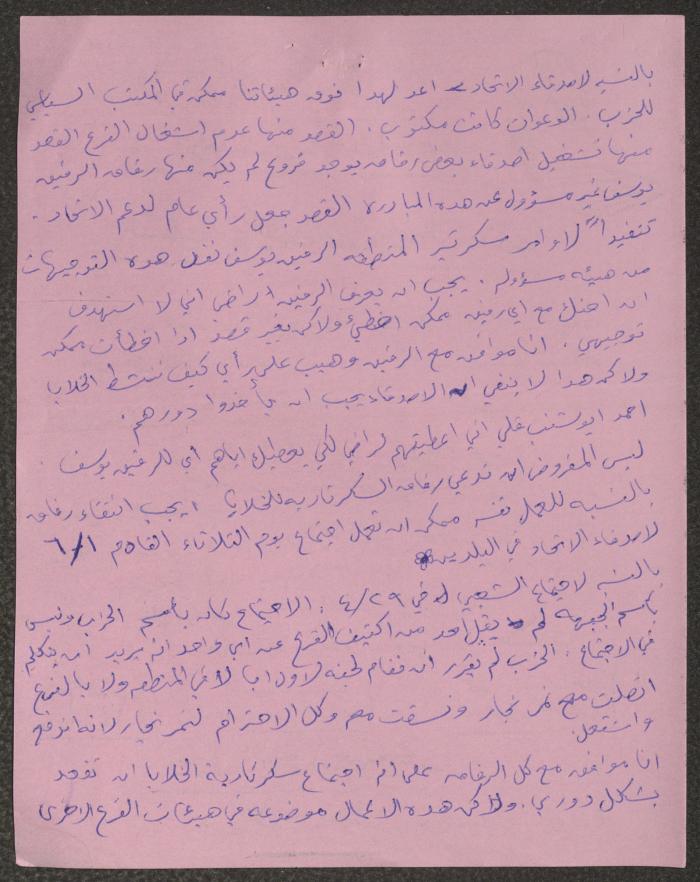 بالنسبه لاصدقاء الاتحاد - اعد لهذا فوق هيئاتنا ممكن في المكتب السياسي
للحزب. الدعوات كانت مكتوب. القصد منها عدم اشغال الفرع القصد
منها تشغيل اصدقاء بعض رفاق يوجد فروع لم يكن منها رفاق الرفيق
يوسف غير مسؤول عن هذه المبادره القصد جعل رأي عام لدعم الاتحاد.
تنفيذاً لاوامر سكرتير المنطقه الرفيق يوسف نفل هذه التوجيهات
من هيئه مسؤوله. يجب ان يعرف الرفيق راضي اني لا استهدف
ان احتك مع اي رفيق ممكن اخطئ ولاكن بغير قصد اذا اخطأت ممكن
توجيهي. انا موافق مع الرفيق وهيب علي رأي كيف ننشط الخلايا
ولاكن هذا لا ينفي ان الاصدقاء يجب ان يأخذوا دورهم.
احمد ابو شنب قلي اني اعطيتهم لراضي لكي يعطيك اياهم اي للرفيق يوسف
ليس المفروض ان ندعي رفاق السكرتاريه للخلايا. يجب انتقاء رفاق
بالنسبه للعمل نفسه ممكن ان نعمل اجتماع يوم الثلاثاء القادم ٦/١
لاصدقاء الاتحاد في البلدين
بالنسبه لاجتماع الشعبي في ٤/٢٩. الاجتماع كان باسم الحزب وليس
باسم الجبهه لم يقل احد من اكتيف الفرع عن اي واحد انه يريد ان يتكلم
في الاجتماع. الحزب لم يقرر ان تقام لجنه لاول ايا لا في المنطقه ولا بالفرع
اتصلت مع نمر نجار ونسقت معه وكل الاحترام لنمر نجار لانه اندفع
واشتغل.
انا موافق مع كل الرفاق على انه اجتماع سكرتارية الخلايا ان تعقد
بشكل دوري. ولاكن هذه الاعمال موضوعه في هيئات الفرع الاخرى